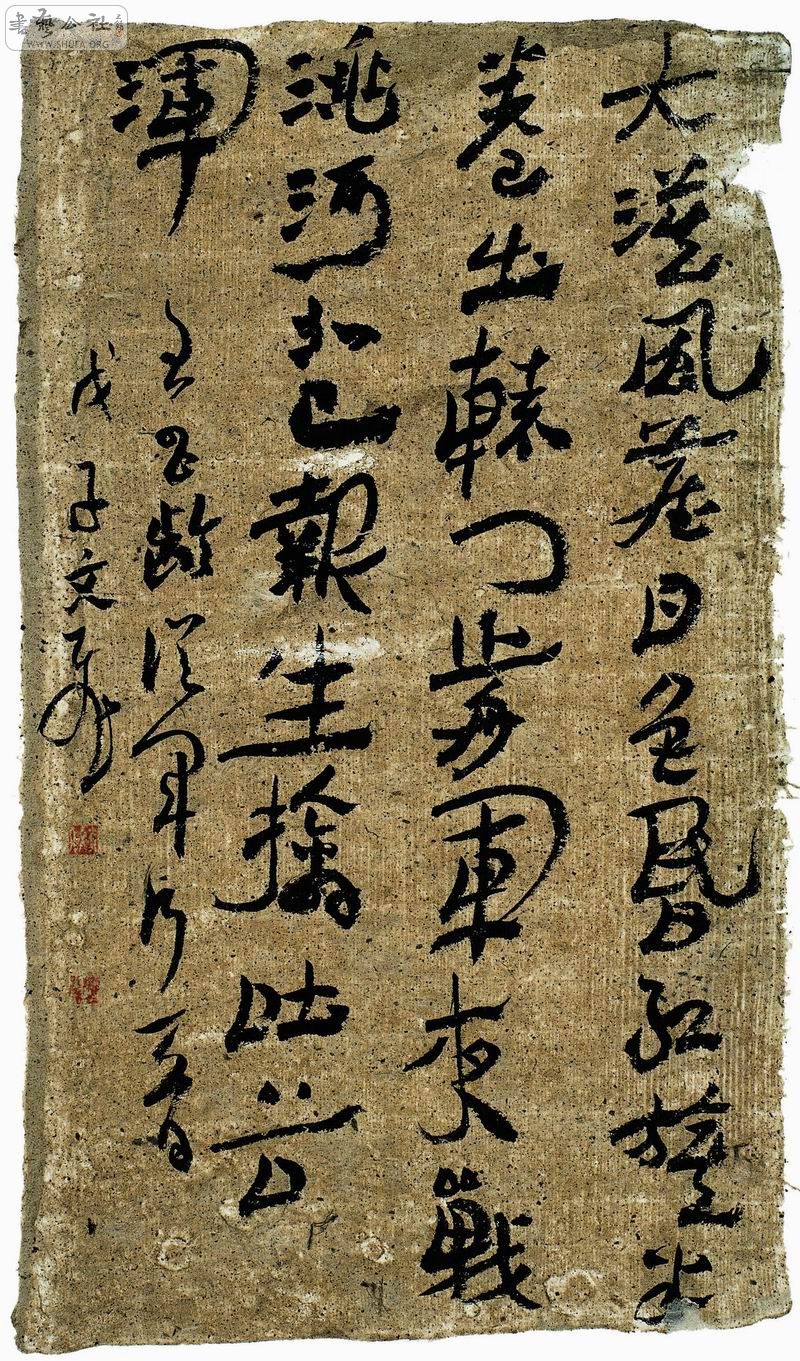 書藝公社
WWW.SHUFA.ORG
大漠風塵日色昏紅旗半
卷出轅門前軍夜戰
洮河北已報生擒吐谷
渾
王昌齡從軍行一首
戊子文